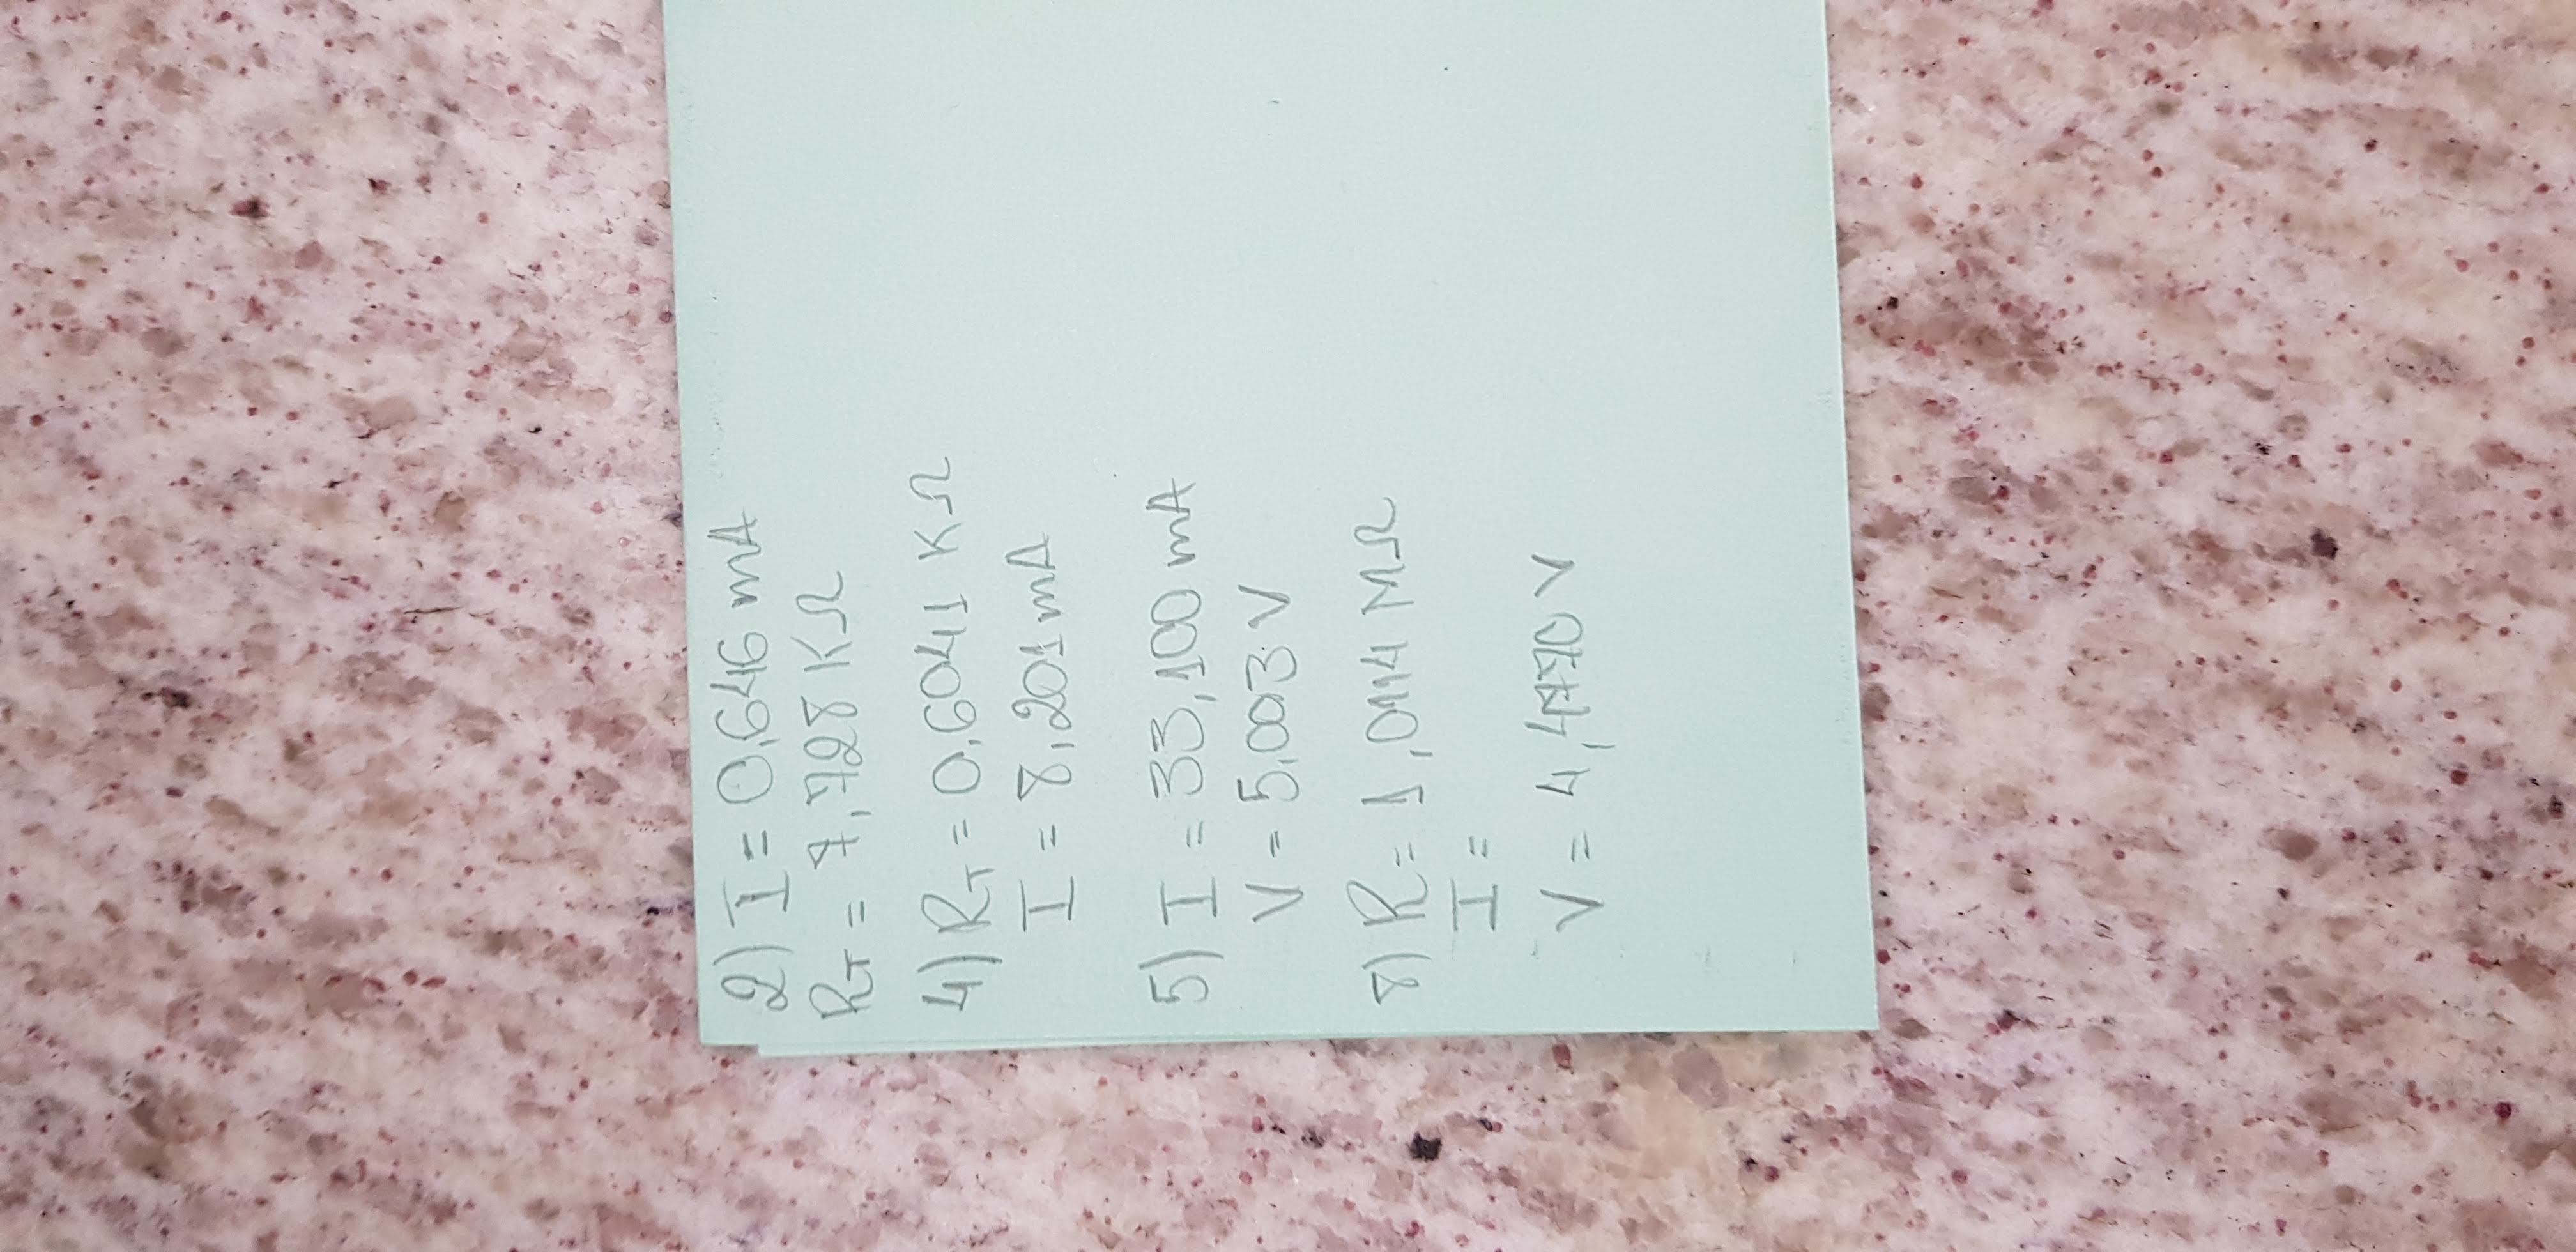 2) I = 0,646 mA
RT = 7,728 KΩ
4) RT = 0,6041 KΩ
I = 8,201 mA
5) I = 33,100 mA
V = 5,003 V
8) R = 1,0114 MΩ
I =
V = 4,4770 V